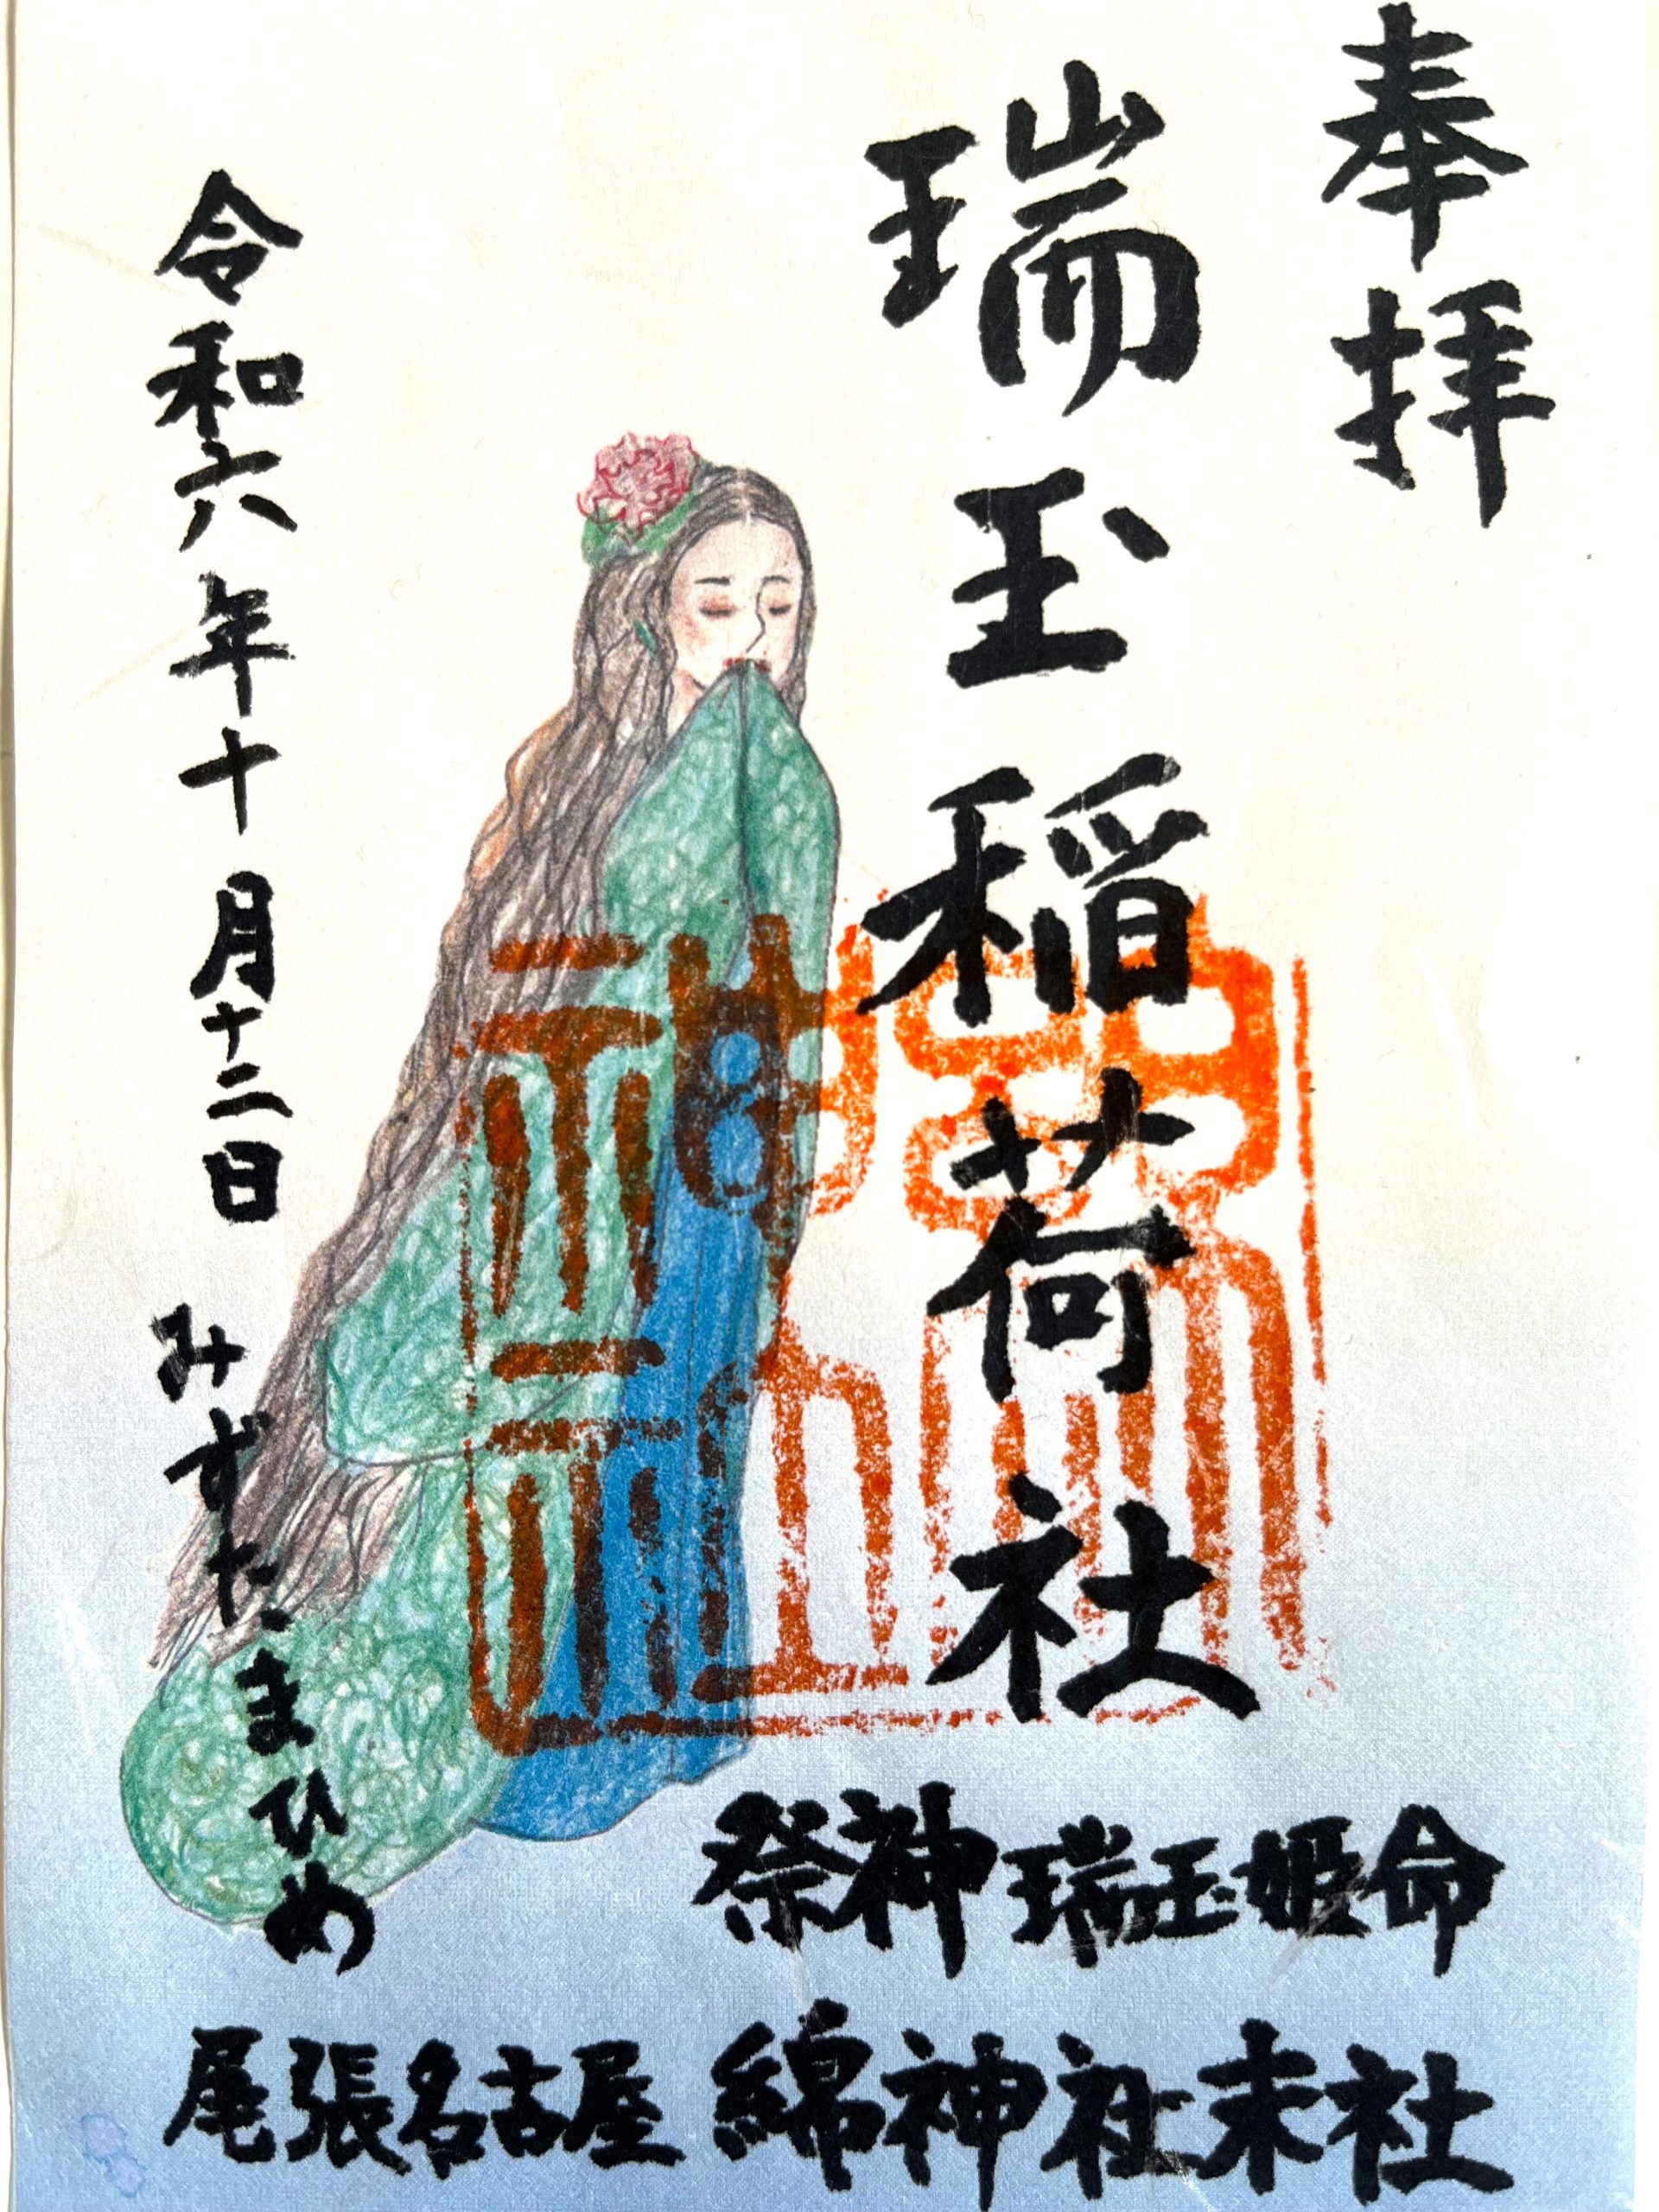 奉拝
瑞玉稲荷社
令和六年十月十二日
みずたまひめ
祭神 瑞玉姫命
尾張名古屋 綿神社末社